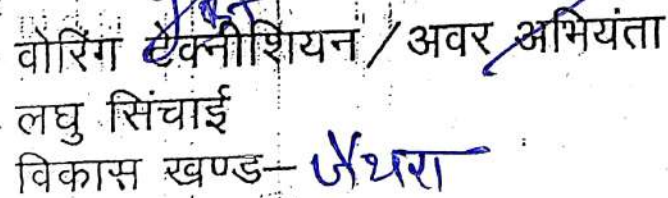 वोरिंग टेक्नीशियन / अवर अभियंता
लघु सिंचाई
विकास खण्ड- जैथरा